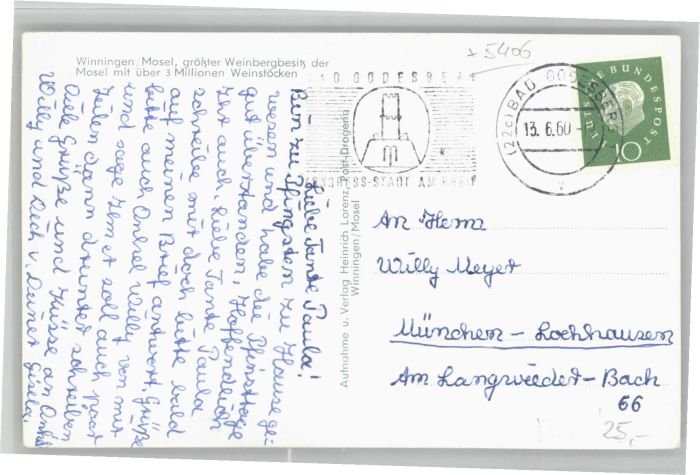 Winningen/Mosel, größter Weinbergbesitz der
Mosel mit über 3 Millionen Weinstöcken
x 5406
BAD GODESBERG
KONGRESS-STADT AM RHEIN
(22c) BAD GODESBERG 1
13.6.60
v
DEUTSCHE BUNDESPOST
LUTHE
10
Liebe Tante Paula!
Bin zu Pfingsten zu Hause ge-
wesen und habe die Pfingsttage
gut überstanden, Hoffendlich
Ihr auch. Liebe Tante Paula
schreibe mir doch bitte bald
auf meinen Brief antwort. Grüße
bitte auch Onkel Willy von mir
und sage Ihm er soll auch paar
Zeilen dann drunter schreiben
Viele Grüße und Küsse an Onkel
Willy und Dich v. Deiner Gisela.
Aufnahme u. Verlag Heinrich Lorenz, Post-Drogerie
Winningen/Mosel
An Herrn
Willy Meyer
München - Lochhausen
Am Langwieder-Bach
66
25,-